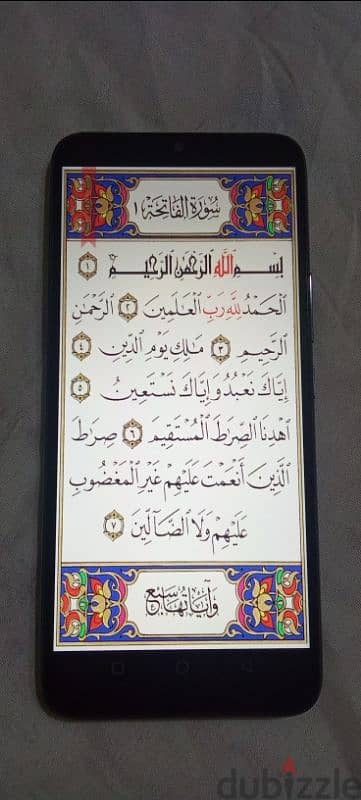 سُورَةُ الفَاتِحَةِ ١
بِسْمِ اللَّهِ الرَّحْمَٰنِ الرَّحِيمِ ١
الْحَمْدُ لِلَّهِ رَبِّ الْعَالَمِينَ ٢ الرَّحْمَٰنِ
الرَّحِيمِ ٣ مَالِكِ يَوْمِ الدِّينِ ٤
إِيَّاكَ نَعْبُدُ وَإِيَّاكَ نَسْتَعِينُ ٥
اهْدِنَا الصِّرَاطَ الْمُسْتَقِيمَ ٦ صِرَاطَ
الَّذِينَ أَنْعَمْتَ عَلَيْهِمْ غَيْرِ الْمَغْضُوبِ
عَلَيْهِمْ وَلَا الضَّالِّينَ ٧
وَآيَاتُهَا سَبْعٌ
dubizzle